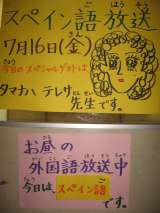 スペイン語放送
7月16日(金)
今日のスペシャルゲストは
タマハ テレサ
先生です。
お昼の
外国語放送中
今日は、スペイン語
です。